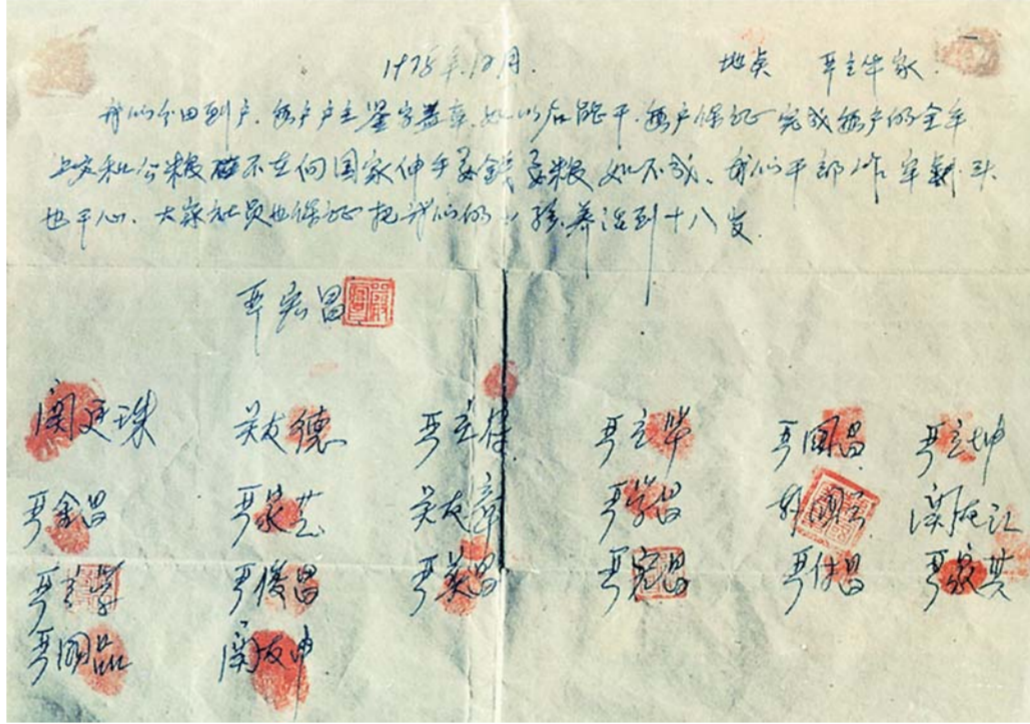 1978年12月. 地点 严立华家
我们分田到户. 每户户主签字盖章. 如以后能干. 每户保证完成每户的全年
上交和公粮 不在向国家伸手要钱要粮 如不成. 我们干部作牢刹头
也干心. 大家社员也保证把我们的小孩养活到十八岁.
严宏昌
关廷珠 关友德 严立符 严立华 严国昌 严立坤
严金昌 严家芝 关友章 严学昌 韩国云 关友江
严立学 严俊昌 严美昌 严宏昌 严付昌 严家其
严国品 关友申